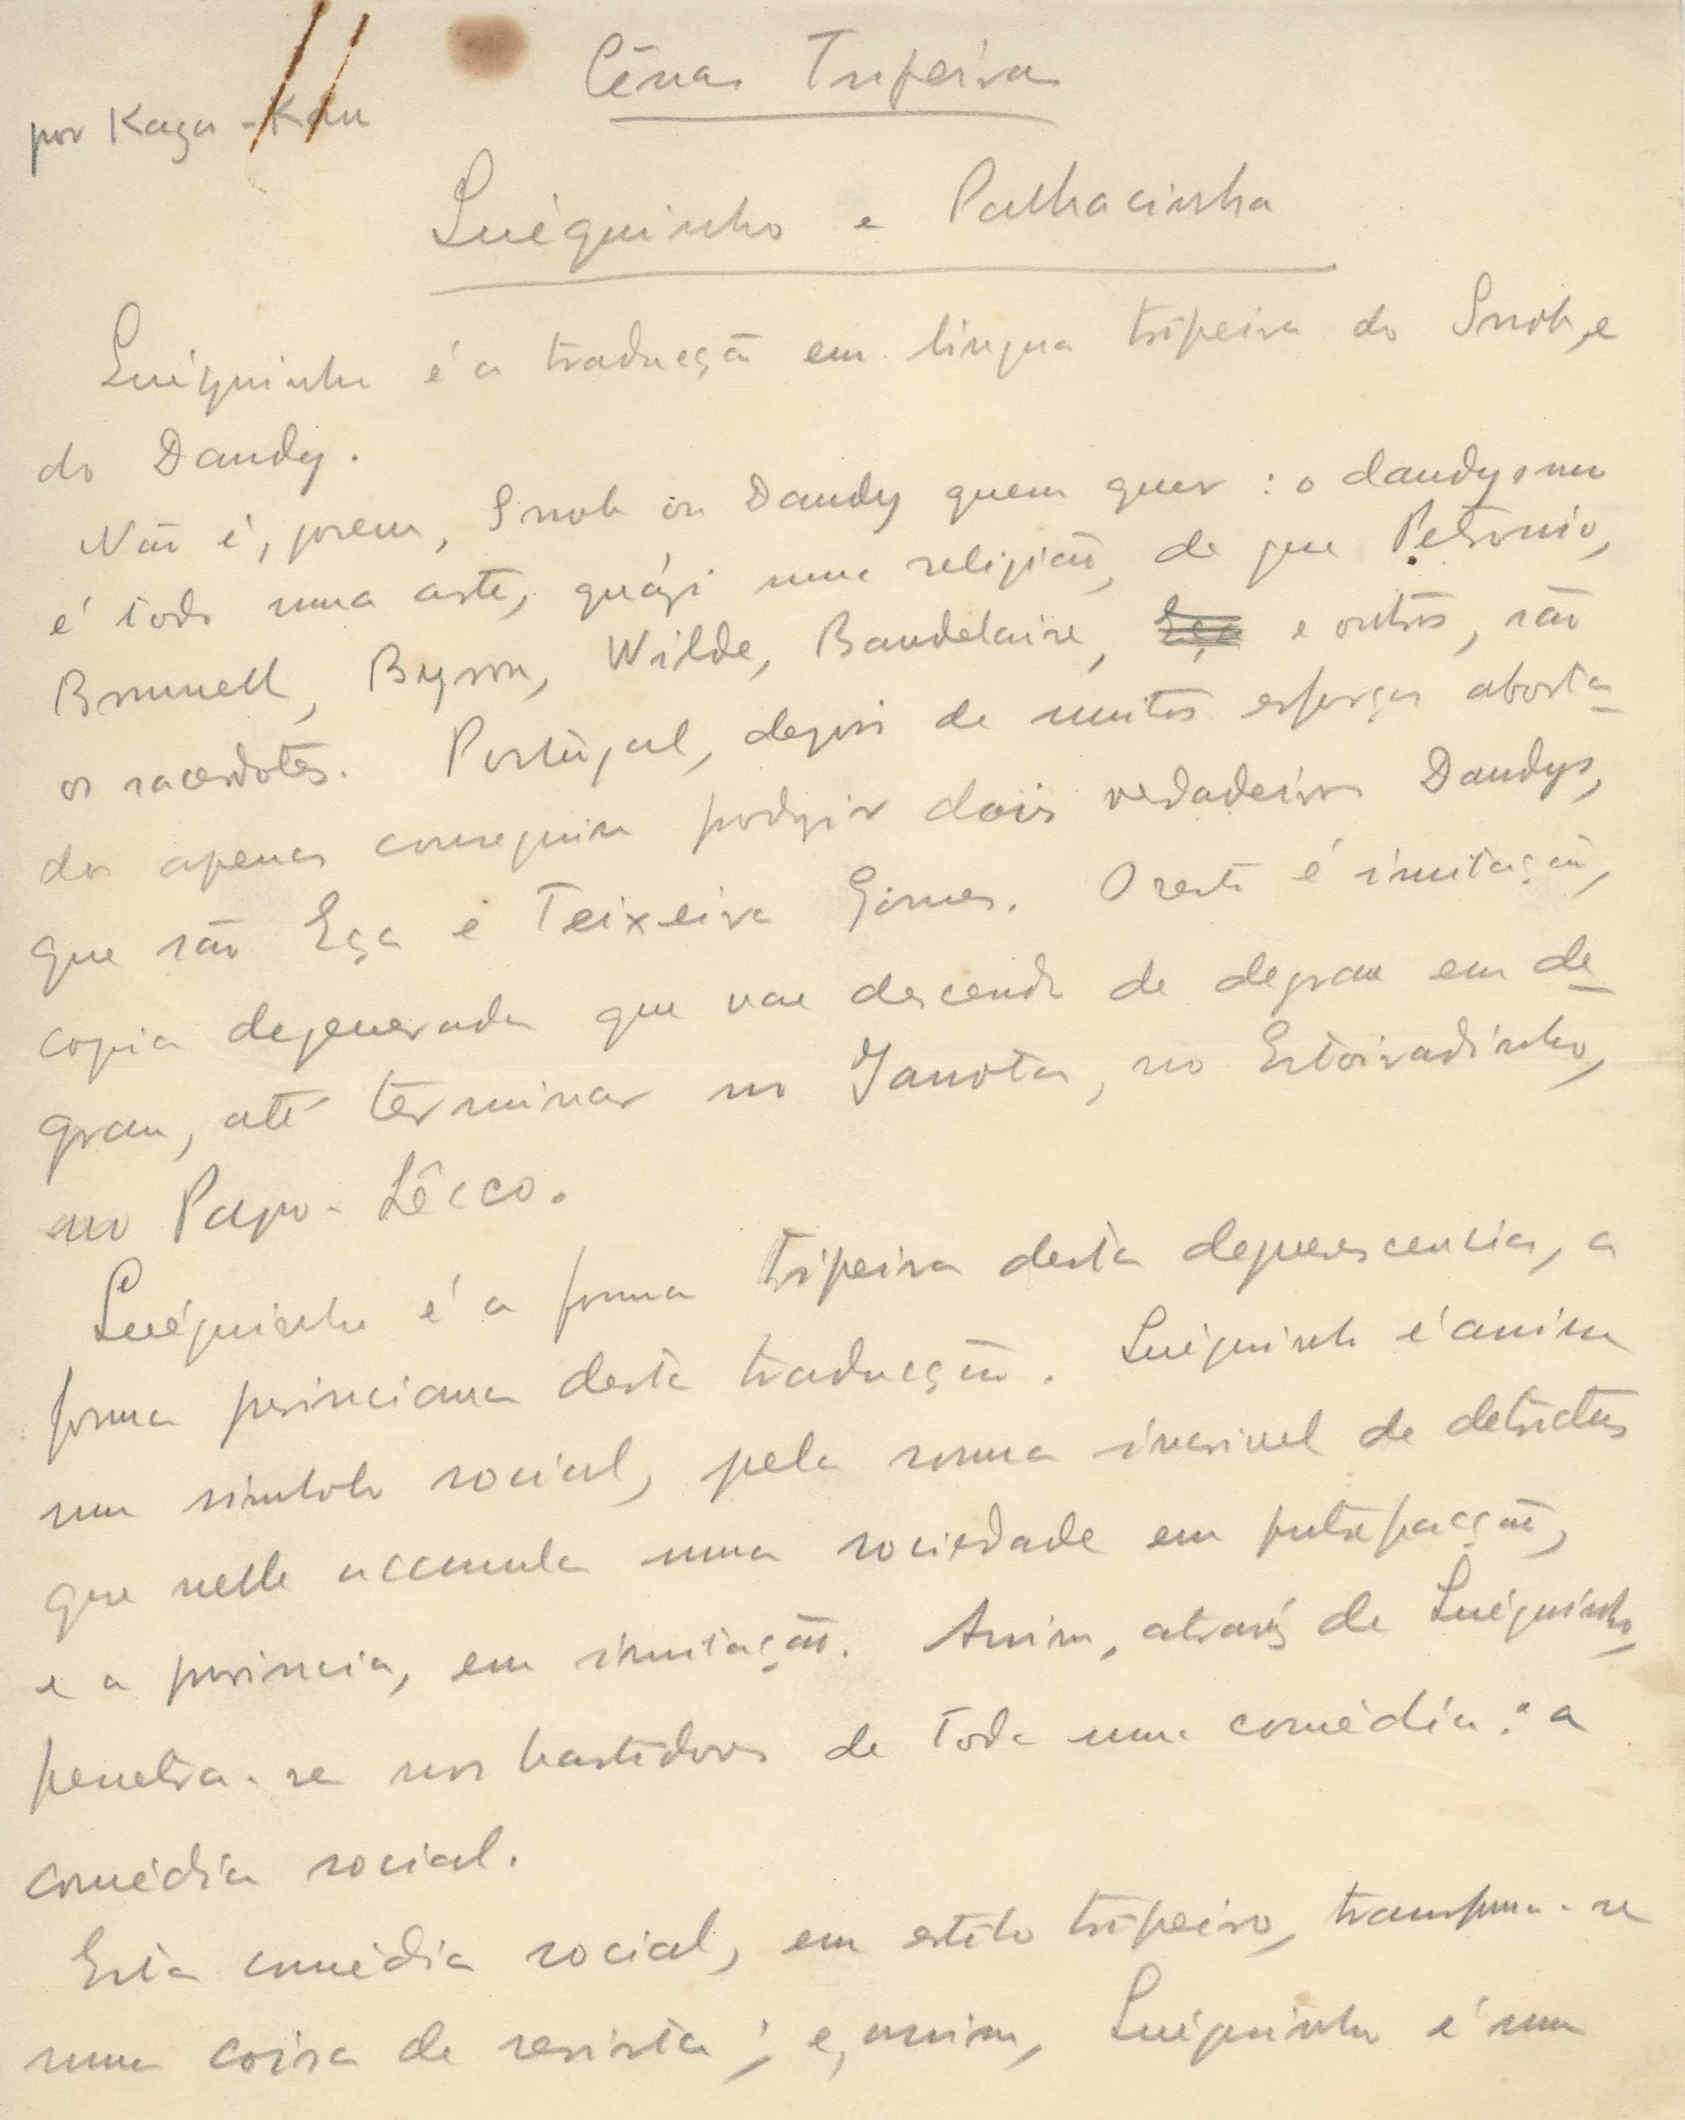 Cênas Tripeiras
por Kaga-Kau
Luéguinho e Palhacinha
Luéguinho é a traducção em lingua tripeira do Snob, e
do Dandy.
Não é, porem, Snob ou Dandy quem quer: o dandysmo
é todo uma arte, quási uma religião, de que Petronio,
Brummell, Byron, Wilde, Baudelaire, e outros, são
os sacerdotes. Portugal, depois de muitos esforços aborta-
dos apenas conseguiu produzir dois verdadeiros Dandys,
que são Eça e Teixeira Gomes. O resto é imitação,
copia degenerada que vae descendo de degrau em de-
grau, até terminar no Janota, no Estoiradinho,
no Papo-Sêcco.
Luéguinho é a forma tripeira desta degenerescencia, a
forma provinciana desta traducção. Luéguinho é assim
um simbolo social, pela soma incrivel de detrictos
que nelle accumula uma sociedade em putrefacção,
e a provincia, em imitação. Assim, através de Luéguinho,
penetra-se nos bastidores de toda uma comédia: a
comédia social.
Esta comédia social, em estilo tripeiro, transforma-se
numa coisa de revista; e, assim, Luéguinho é um